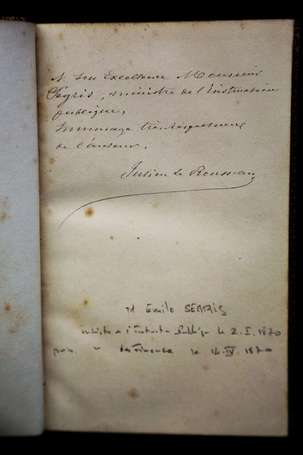 A Son Excellence Monsieur
Ségris, ministre de l'Instruction
publique,
hommage très respectueux
de l'auteur.
Julien Le Rousseau
M Emile SEGRIS
ministre de l'Instruction Publique le 2. I. 1870
puis des Finances le 14. IV. 1870